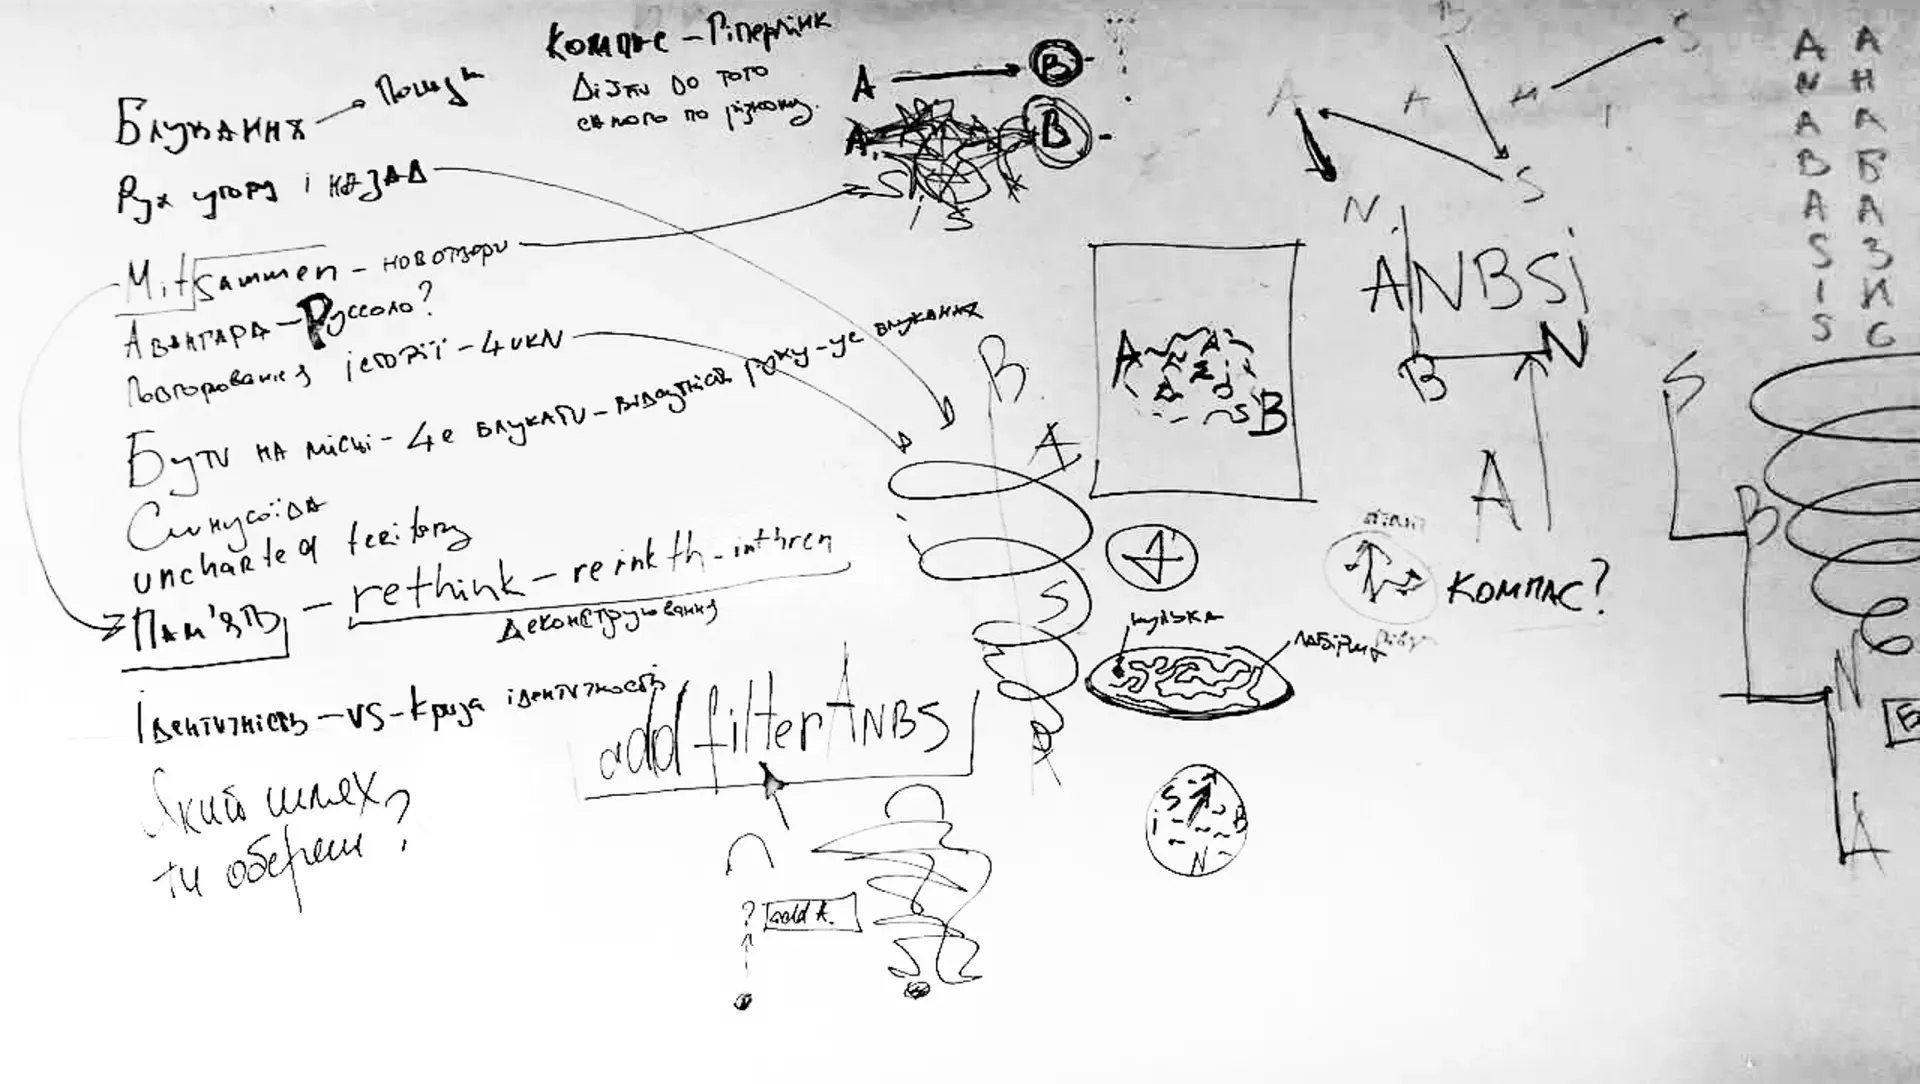 Компас – Гіперлінк
Дійти до того
самого по різному.
A → B
A. B
S
i S
Блукання → Пошук
Рух угору і назад
Mitsammen – новотвори
Авангард – Руссоло?
Повторювання історії – цикл
Бути на місці – це блукати – відсутність руху – це блукання
Синусоїда
uncharted teritory
Пам'ять – rethink – rerinkth – inthren
Деконструювання
Ідентичність – VS – криза ідентичность
Який шлях
ти обереш?
add filter ANBS
? add A.
B
A
S
A
A B
кулька
лабіринт
S
i B
N
B S
A A
S
N
ANBSi
B N
A
КОМПАС?
A A
N Н
A А
B Б
A А
S З
I И
S С
S
B
N
A